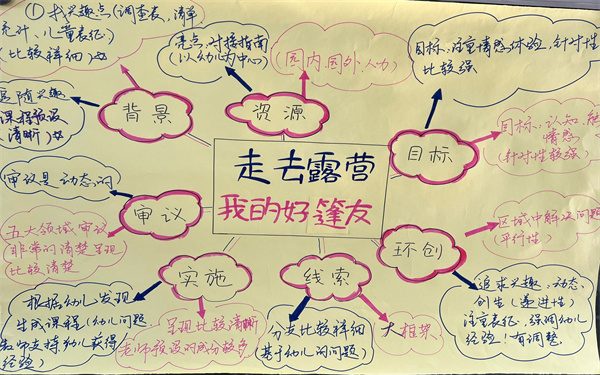 ① 找兴趣点(调查表,清单
统计、儿童表征)
(比较详细)
亮点,对接指南
(以幼儿为中心)
(园内园外人力)
目标:注重情感体验,针对性
比较强
追随兴趣
课程预设
(清晰)
背景
资源
目标
目标:认知、能
情感
(针对性较强)
走去露营
我的好篷友
审议是动态的
审议
五大领域审议
(非常的清楚呈现
比较清楚
环创
区域中解决问题
(平行性)
实施
线索
根据幼儿发现
生成课程(幼儿问题
老师支持幼儿获得
经验)
呈现比较清晰
老师预设的成分较多
分支比较详细
(基于幼儿的问题)
大框架
追求兴趣、动态、
创生(递进性)
注重表征,强调幼儿
经验!有调整.